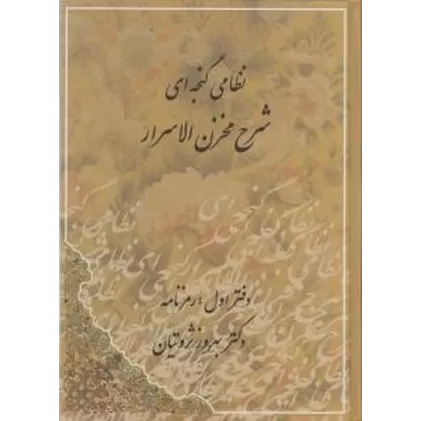 نظامی گنجه‌ای
شرح مخزن الاسرار
دفتر اول : رمزنامه
دکتر بهروز ثروتیان